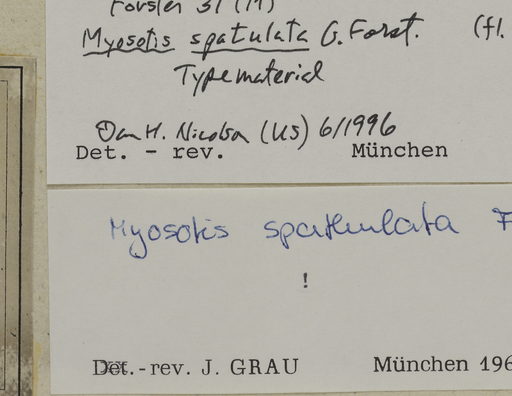 Forster 31 (M)
Myosotis spatulata G. Forst. (fl.
Type material
Dan H. Nicolson (US) 6/1996
Det. - rev. München
Myosotis spathulata F
!
Det.-rev. J. GRAU München 196